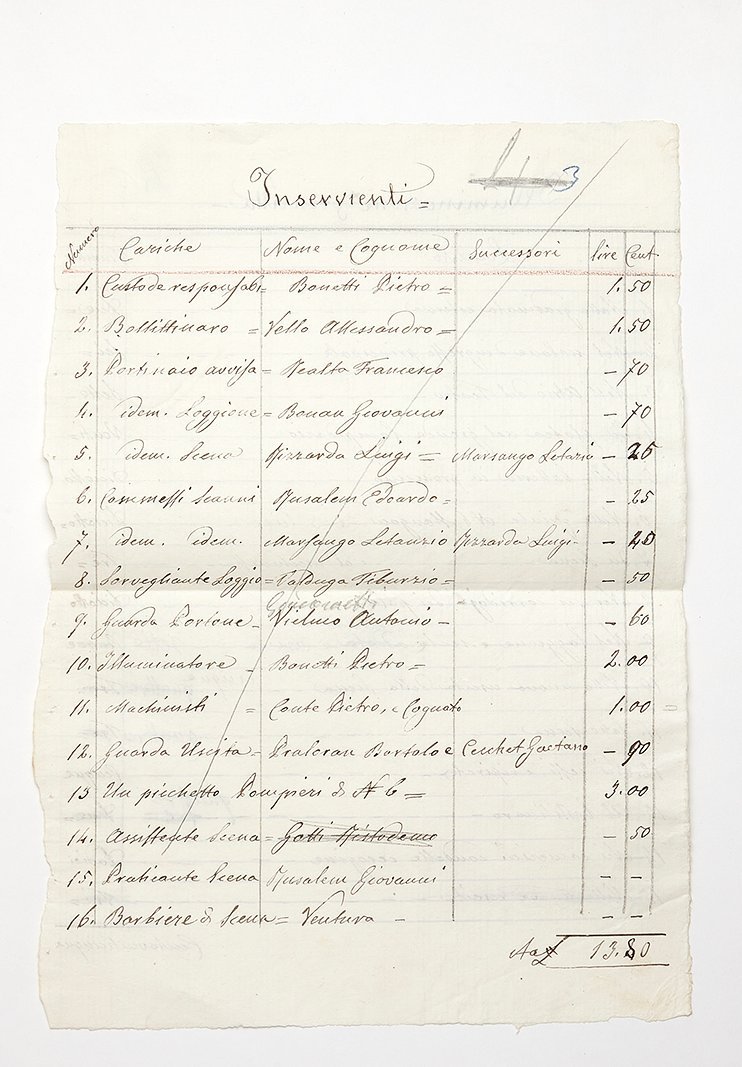 3
Inservienti =
Numero Cariche Nome e Cognome Successori lire Cent
1. Custode responsabi= Bonetti Pietro = 1. 50
2. Bollittinaro = Vello Allessandro = 1. 50
3. Portinaio avvisa= Realta Francesco – 70
4. idem. Loggione = Bonan Giovanni – 70
5. idem. Scena Rizzarda Luigi = Marsango Letazio – 25
6. Commessi Scanni Rusalem Edoardo = – 25
7. idem. idem. Marsango Letanzio Rizzarda Luigi – – 25
8. Sorvegliante Loggio = Talduga Tiburzio = – 50
9. Guarda Portone – Vielmo Antonio – – 60
10. Illuminatore – Bonetti Pietro = 2. 00
11. Machinisti = Conte Pietro, e Cognato 1. 00 =
12. Guarda Uscita = Pralcran Bortolo e Cecchet Gaetano – 90
13 Un picchetto Pompieri di N 6 = 3. 00
14. Assistente Scena = Gotti Ristodemo – 50
15. Praticante Scena Rusalem Giovanni – –
16. Barbiere di Scena = Ventura – – –
13. 80